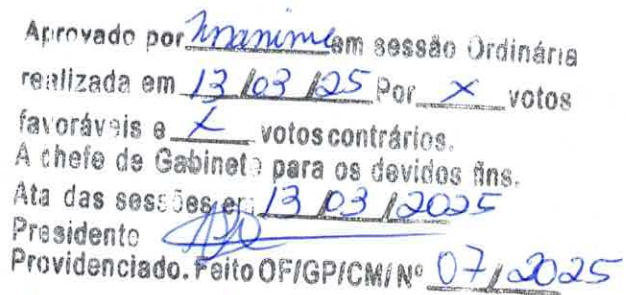 Aprovado por Unanime em sessão Ordinária
realizada em 13/03/25 Por X votos
favoráveis e X votos contrários.
A chefe de Gabinete para os devidos fins.
Ata das sessões em 13/03/2025
Presidente
Providenciado. Feito OF/GP/CM/ Nº 07/2025